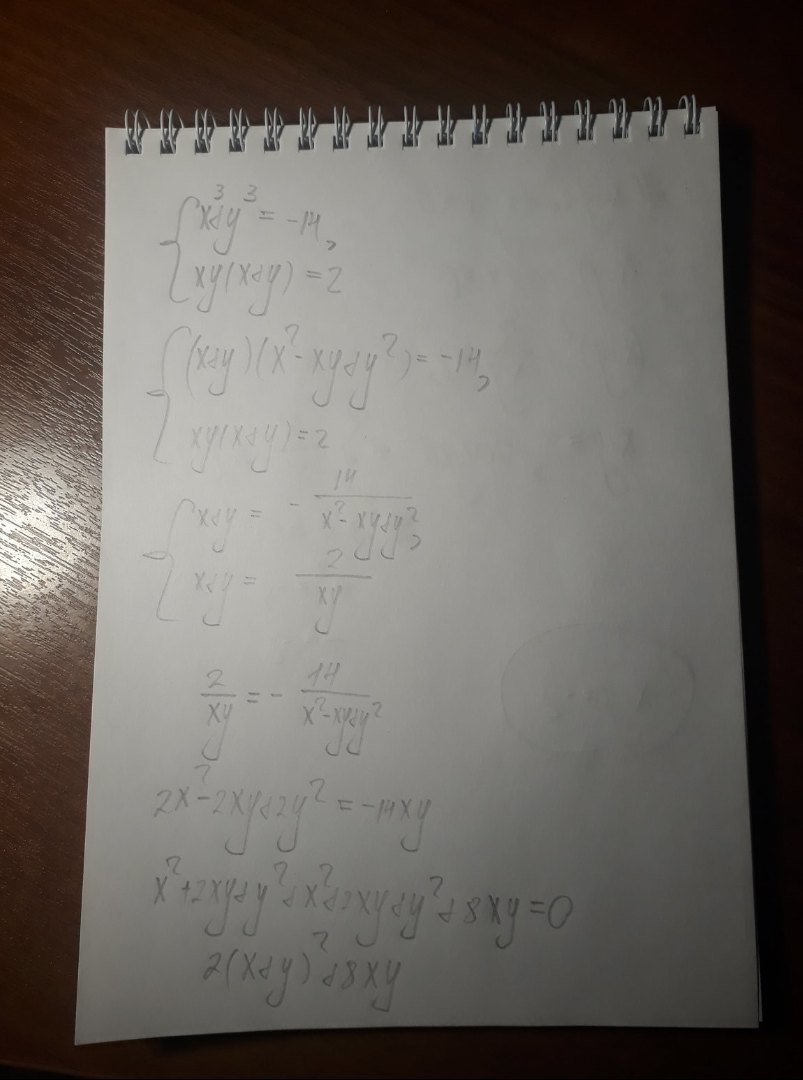 { x³+y³ = -14,
xy(x+y) = 2
{ (x+y)(x²-xy+y²) = -14,
xy(x+y) = 2
{ x+y = - 14/(x²-xy+y²),
x+y = 2/(xy)
2/(xy) = - 14/(x²-xy+y²)
2x²-2xy+2y² = -14xy
x²+2xy+y²+x²+2xy+y²+8xy=0
2(x+y)²+8xy